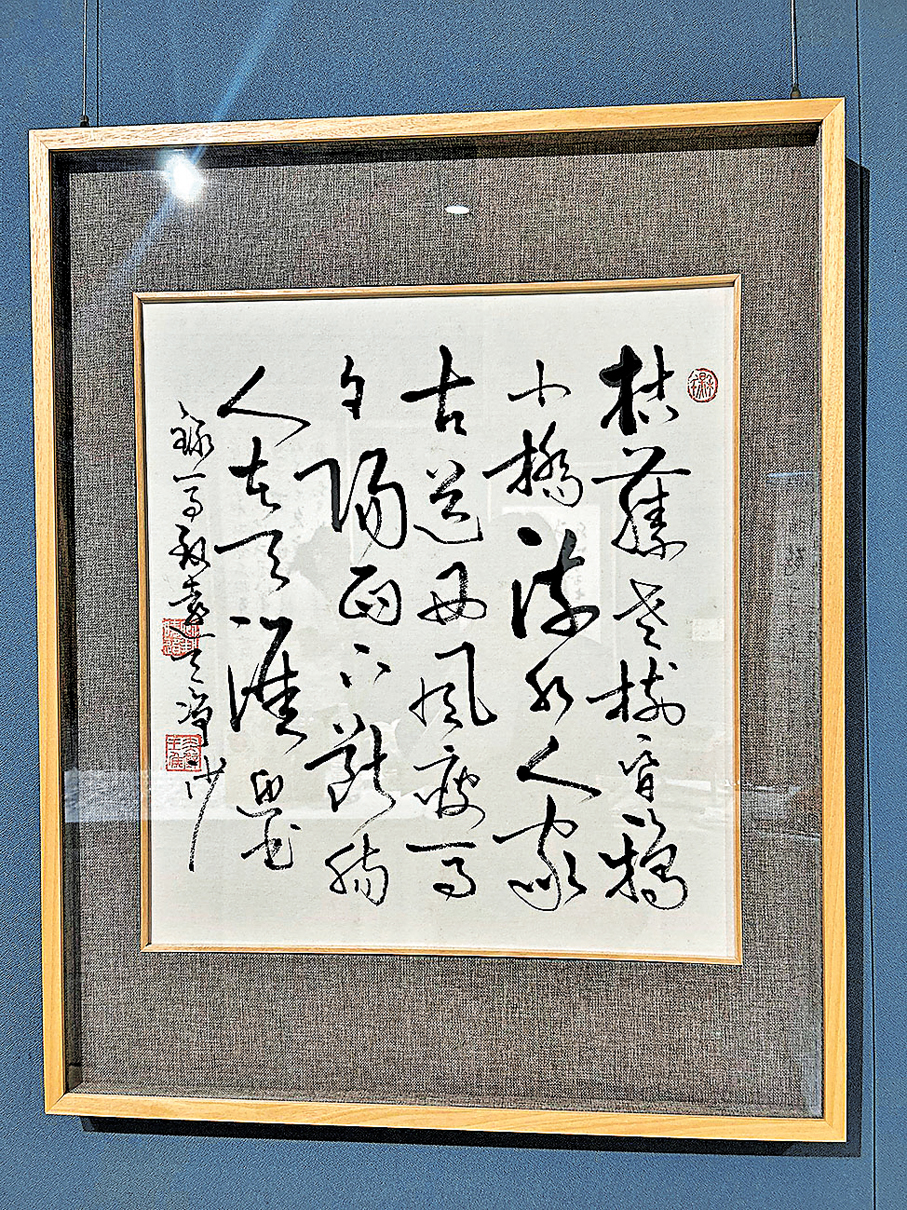 枯藤老樹昏鴉
小橋流水人家
古道西風瘦馬
夕陽西下斷腸
人在天涯
錄馬致遠天淨沙